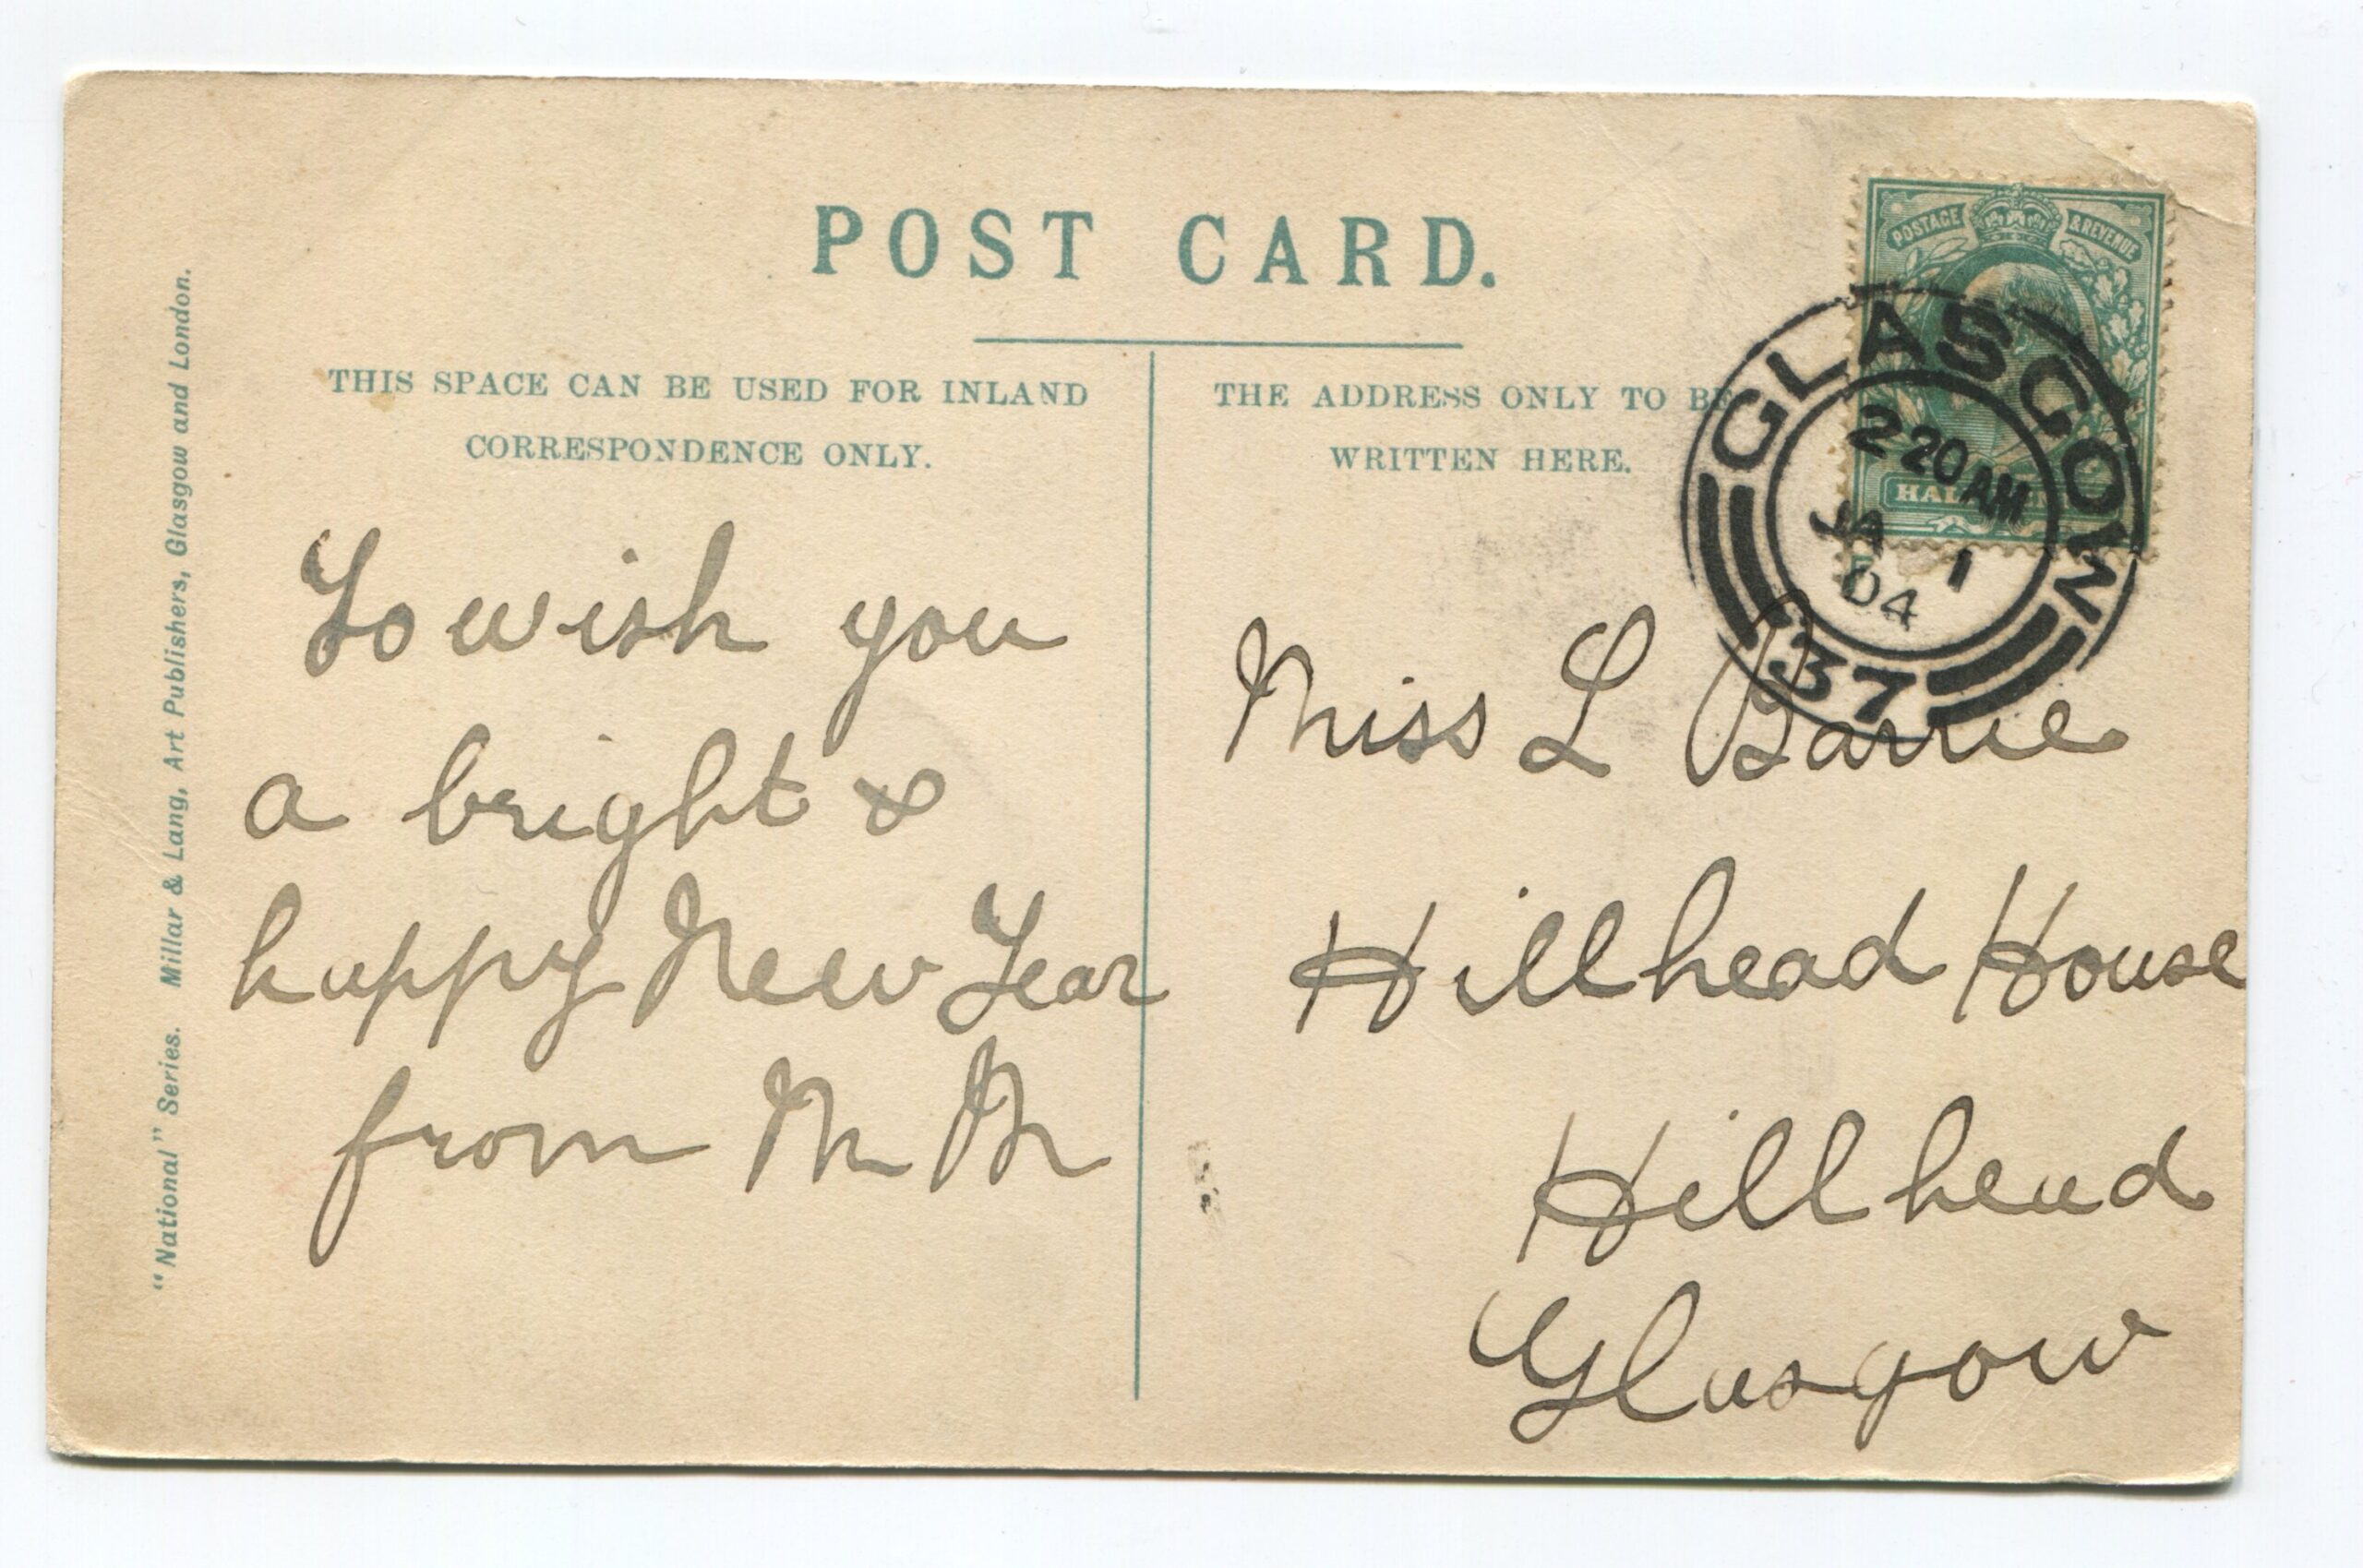 POST CARD.
THIS SPACE CAN BE USED FOR INLAND
CORRESPONDENCE ONLY.
THE ADDRESS ONLY TO BE
WRITTEN HERE.
"National" Series. Millar & Lang, Art Publishers, Glasgow and London.
To wish you
a bright &
happy New Year
from M M
POSTAGE & REVENUE
GLASGOW
2 20 AM
JA 1
04
37
Miss L Barrie
Hillhead House
Hillhead
Glasgow